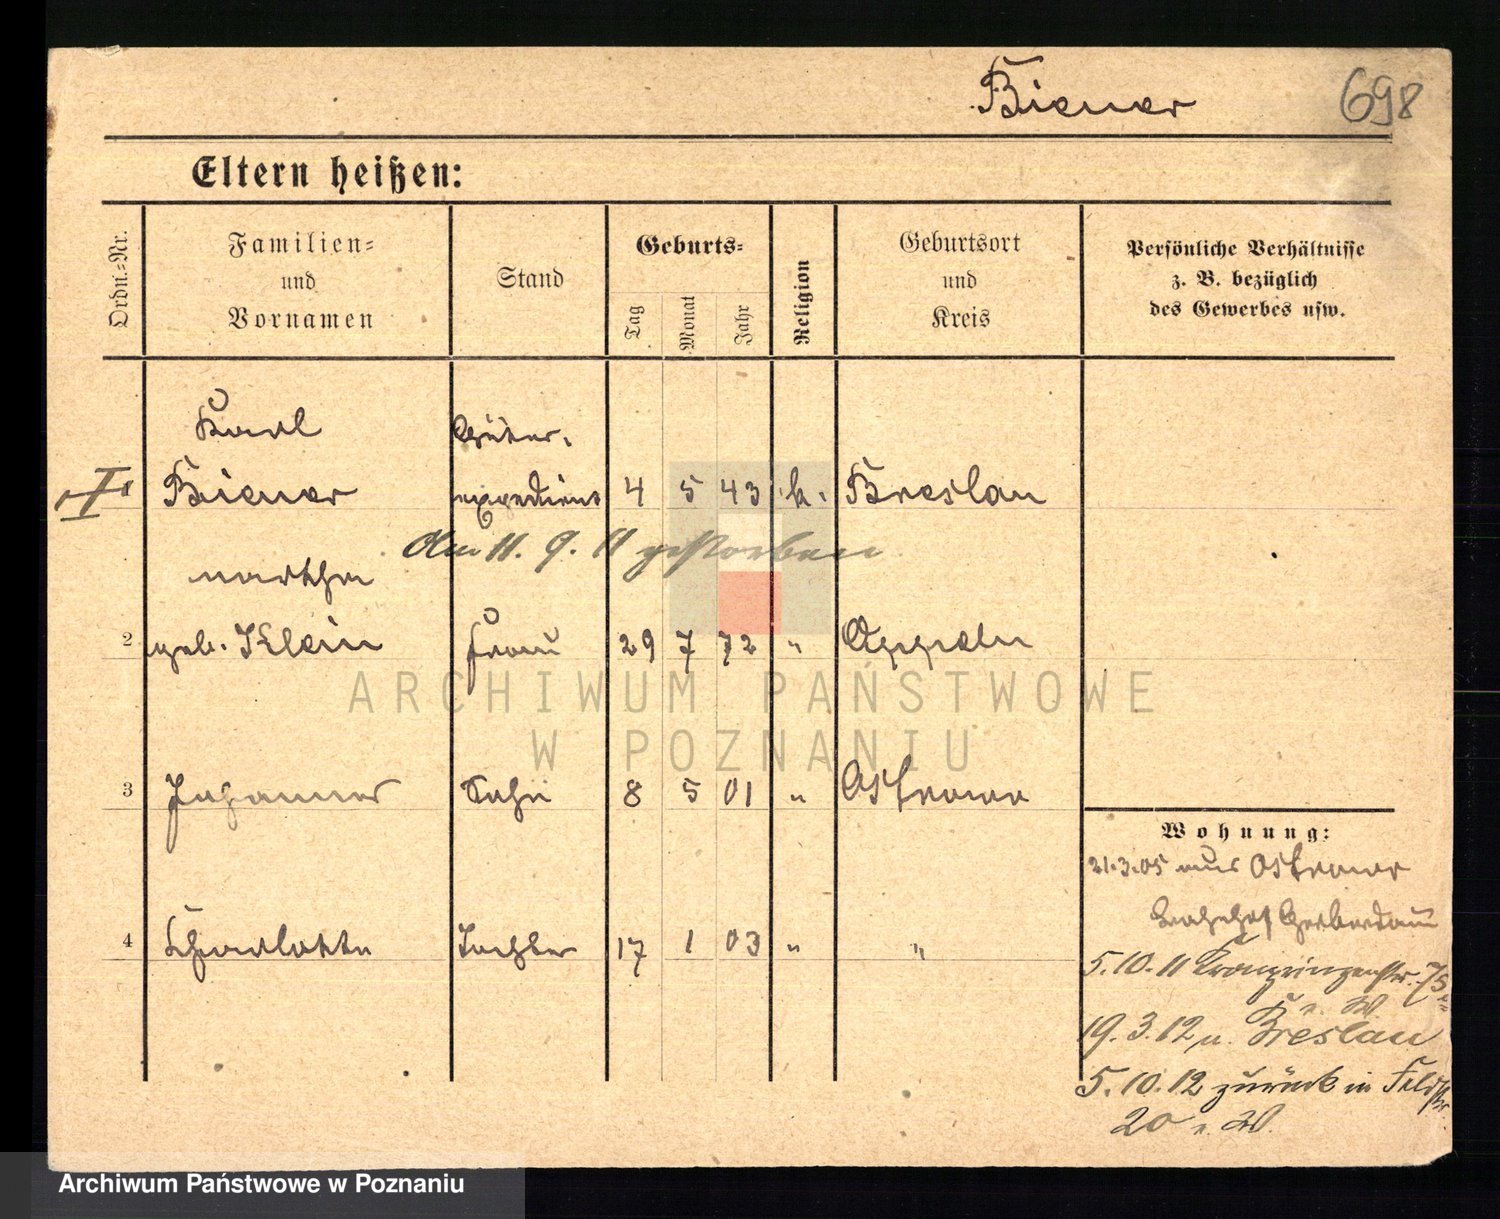 Biener 698
Eltern heißen:
Ordn.-Nr.
Familien- und Vornamen
Stand
Geburts-
Tag
Monat
Jahr
Religion
Geburtsort und Kreis
Persönliche Verhältnisse z. B. bezüglich des Gewerbes usw.
Karl Güter-
I Biener expedient 4 5 43 k. Breslau
Am 11. 9. 11 gestorben
Martha
2 geb. Klein Frau 29 7 72 " Oppeln
3 Johannes Sohn 8 5 01 " Ostrowo
4 Charlotte Tochter 17 1 03 " "
Wohnung:
21.3.05 aus Ostrowo
Bahnhof Gerberdamm
5.10.11 Kronprinzenstr. 75
b. W.
19.3.12 n. Breslau
5.10.12 zurück in Feldstr.
20 b. W.
ARCHIWUM PAŃSTWOWE
W POZNANIU
Archiwum Państwowe w Poznaniu